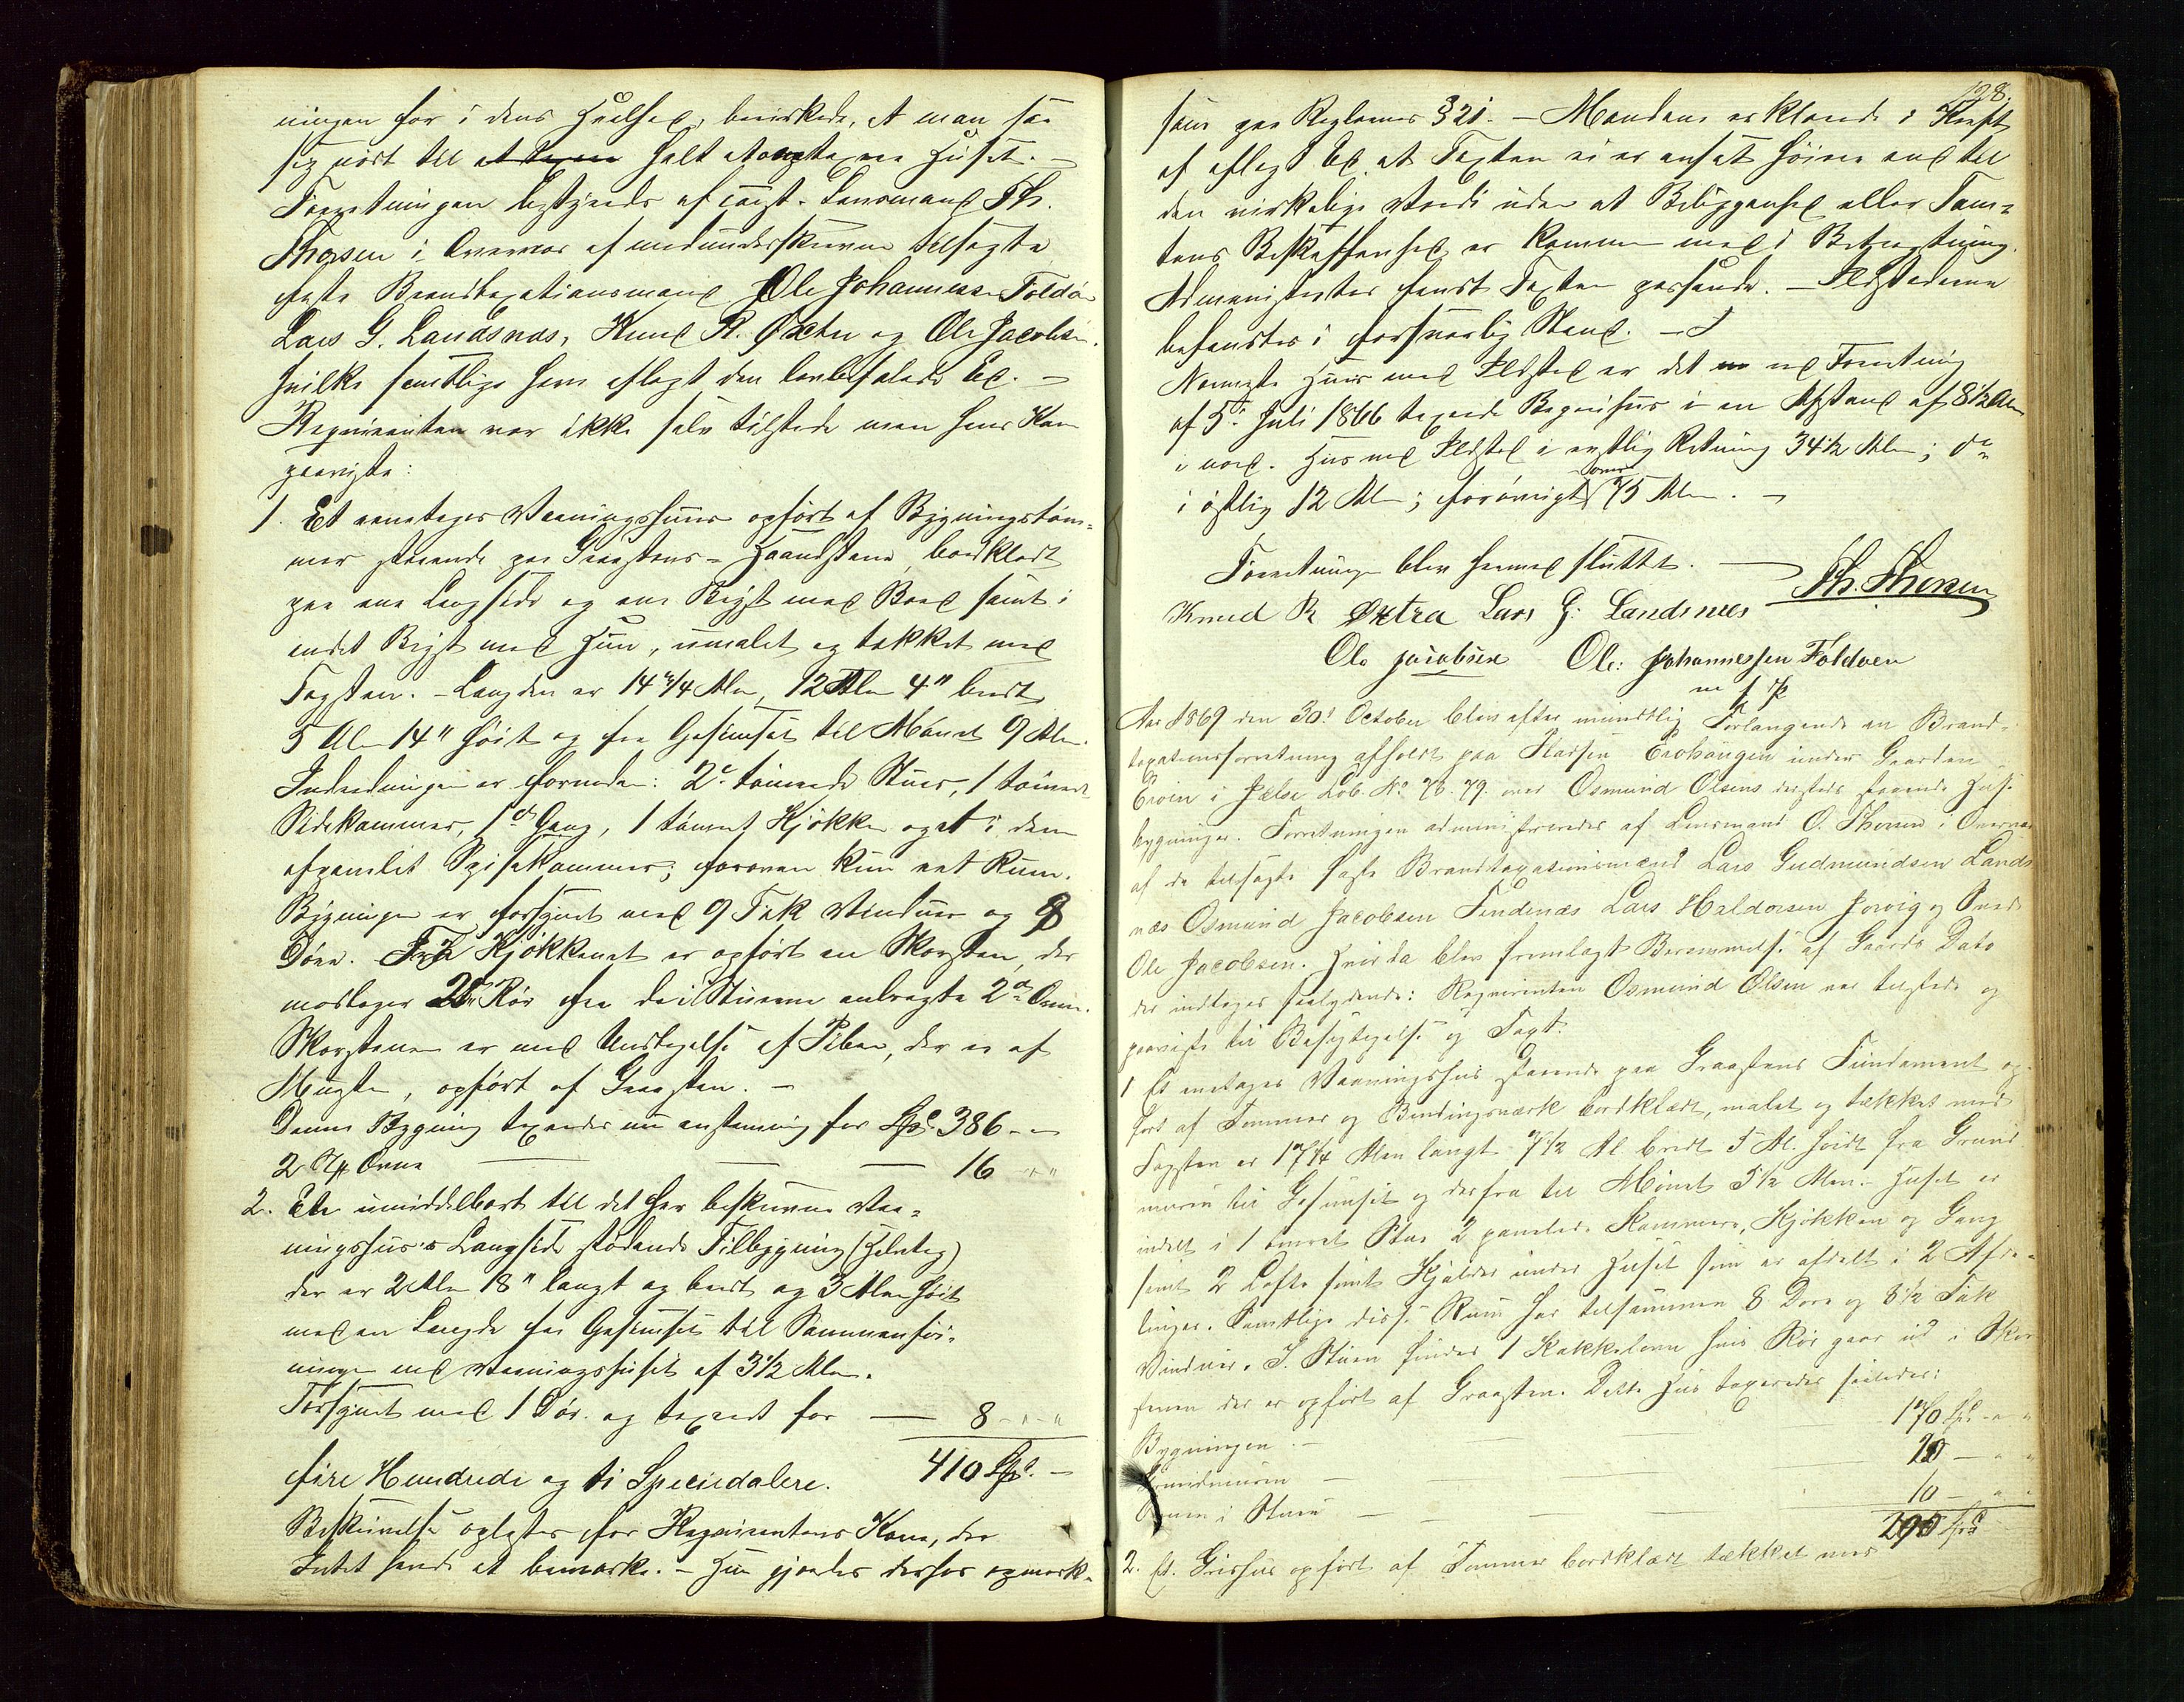 ningen for i dens Huelse, bevirkede, at man saa
sig nødt til at taxere Huset. —
Forretningen bestyredes af const. Lensmand Th.
Thorsen i Overvær af medunderskrevne tilsagte
faste Brandtaxationsmænd Ole Johannessen Foldøen
Lars G. Landsnæs, Knud R. Øxtra og Ole Jacobsen.
hvilke samtlige have aflagt den lovbefalede Ed. —
Requirenten var ikke selv tilstede men hans Kone
paaviste:
1. Et eenetages Vaaningshuus opført af Bygningstøm-
mer staaende paa Graastens- bordklædt
paa ene Langside og ene Bryst med Bord samt i
andet Bryst med Hun, umalet og tækket med
Tagsten. – Længden er 14 3/4 Alen, 12 Alen 4" bredt
5 Alen 14" høit og fra Gesimset til Mønet 9 Alen.
Indredningen er forneden: 2de tømrede Stuer, 1 tømret
Sidekammer, 1 Gang, 1 tømret Kjøkken og et i dem
afpanelet Spisekammer; foroven kun eet Rum.
Bygningen er forsynet med 9 Fak Vinduer og 8
Døre. Fra Kjøkkenet er opført en Skorsten, der
modtager 2de Rør fra de i Stuerne anbragte 2de Ovne.
Skorstenen er med Undtagelse af Piben, der er af
Muursten, opført af Graasten. —
Denne Bygning taxeredes nu enstemmig for Spd. 386 - -
2 Stk Ovne — — — 16 " "
2. En umiddelbart til det her beskrevne Vaa-
ningshus's Langside stødende Tilbygning (Halvtag)
der er 2 Alen 18" langt og bredt og 3 Alen høit
med en Længde fra Gesimset til Sammenføi-
ningen med Vaaningshuset af 3 1/2 Alen.
Forsynet med 1 Dør og taxeret for — 8 - " - "
fire Hundrede og ti Speciedalere. 410 Spd. —
Beskrivelse oplæstes for Requirentens Kone, der
Intet havde at bemærke. – Hun gjordes derhos opmærk-
128.
som paa Reglernes § 21. – Mændene erklærede i Kraft
af aflagt Ed at Taxten ei er ansat høiere end til
den virkelige Værdi uden at Beliggenhed eller Tom-
tens Beskaffenhed er kommen med i Betragtning.
Administrator fandt Taxten passende. – Ildstederne
befandtes i forsvarlig Stand. –
Nærmeste Huus med Ildsted er det ved Forretning
af 5te Juli 1866 taxerede Bagerhuus i en Afstand af 8 1/2 Alen
i nord. Hus med Ildsted i vestlig Retning 34 1/2 Alen; do
i østlig 12 Alen; forøvrigt over 75 Alen. —
Forretningen blev hermed sluttet. —
Th. Thorsen
Knud R Øxtra Lars G: Landsnæs
Ole Jacobsen Ole: Johannessen Foldøen
m f P
Aar 1869 den 30te October blev efter mundtlig Forlangende en Brand-
taxationsforretning afholdt paa Pladsen Erohaugen under Gaarden
Eroen i Jælse Løb. No 76. 79. over Osmund Olsens dersteds staaende Huus-
bygninger. Forretningen administreredes af Lensmand O. Thorsen i Overvær
af de tilsagte faste Brandtaxationsmænd Lars Gudmundsen Lands
næs Osmund Jacobsen Findenæs Lars Haldorsen Jorvig og
Ole Jacobsen. Hvorda blev fremlagt Berammelse af Gaards Dato
der indtages saalydende: Reqvirenten Osmund Olsen var tilstede og
paaviste til Besigtigelse og Taxt.
1 Et enetages Vaaningshus staaende paa Graastens Fundament op-
ført af Tømmer og Bindingsværk bordklædt, malet og tækket med
Tagsten er 17 1/4 Alen langt 7 1/2 Al. bredt 5 Al. høidt fra Grund
muren til Gesimset og derfra til Mønet 5 1/2 Alen. Huset er
indelt i 1 tømret Stue 2 panelede Kammere, Kjøkken og Gang
samt 2 Lofte samt Kjælder under Huset som er afdelt i 2 Afde-
linger. Samtlige disse Rum har tilsammen 8 Døre og 8 1/2 Fak
Vinduer. I Stuen findes 1 Kakkelovn hvis Rør gaar ud i Skor
stenen der er opført af Graasten. Dette Hus taxeredes saaledes:
Bygningen — 170 Spd - " "
Grundmuren — 20 — " "
Ovnen i Stuen — 10 — " "
Spd
2. Et Grishus opført af Tømmer bordklædt tækket med